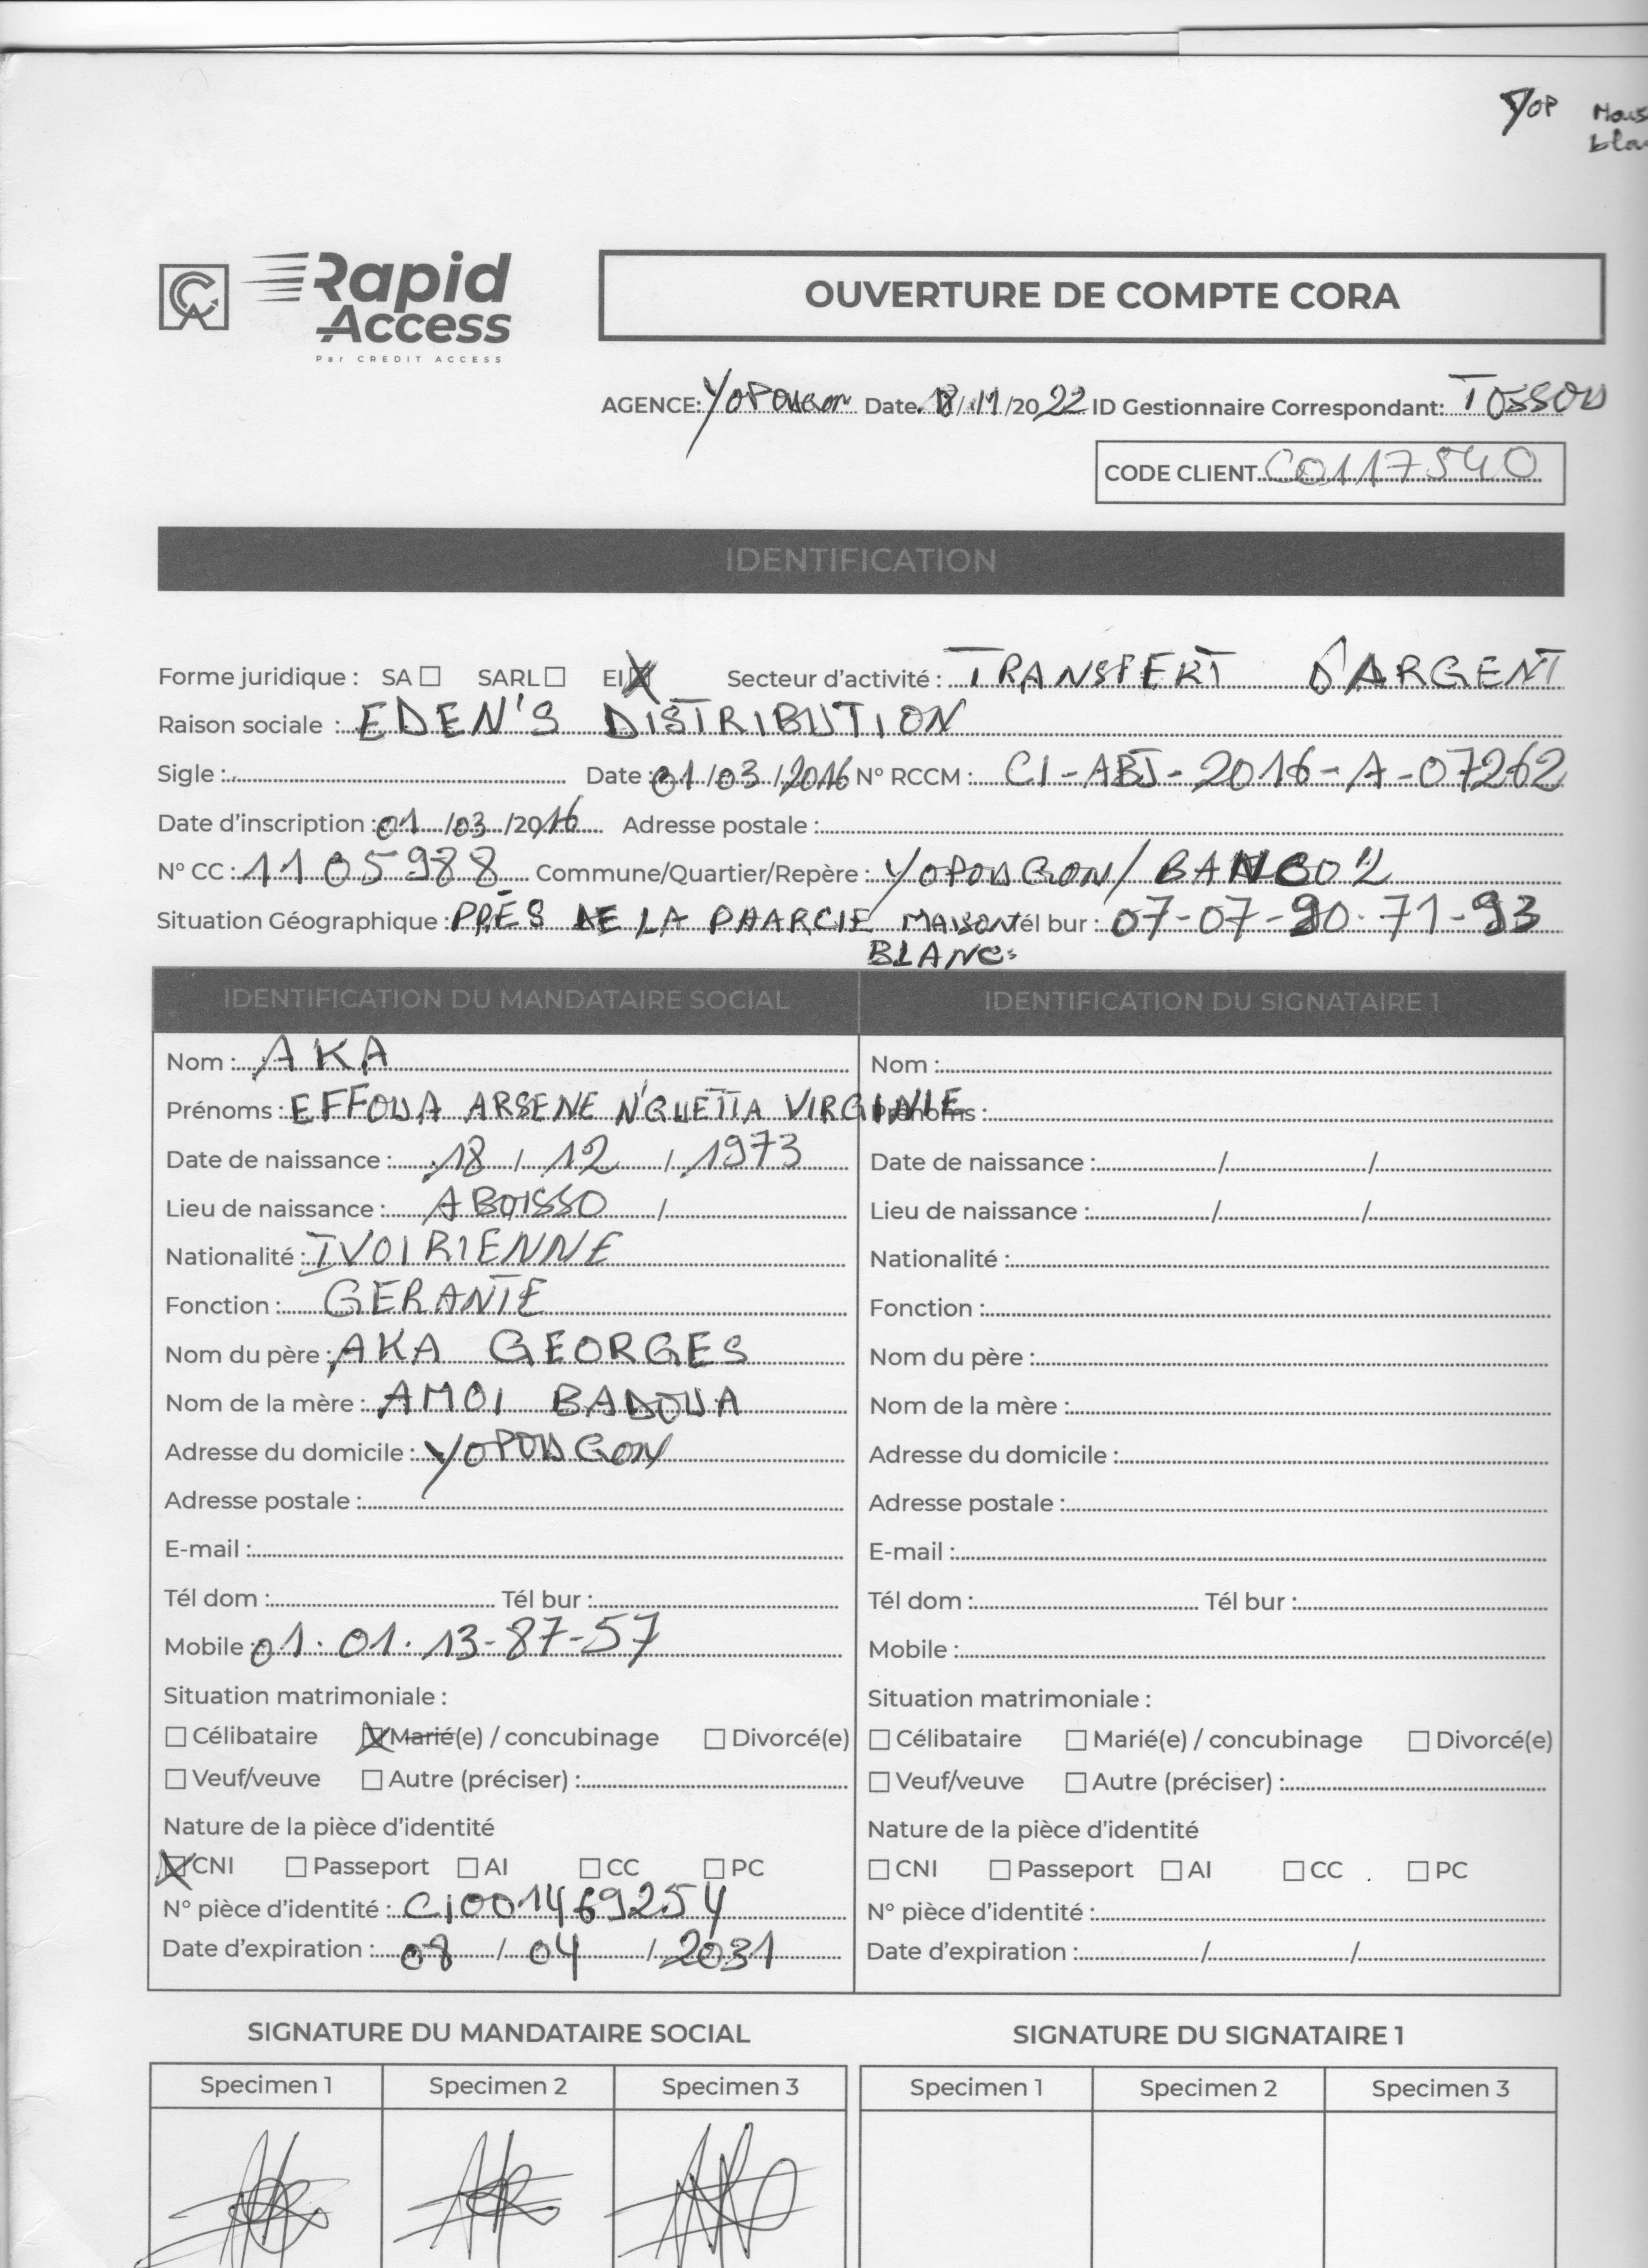 YOP
Rapid Access
Par CREDIT ACCESS
OUVERTURE DE COMPTE CORA
AGENCE: YOPOUGON Date 18/11/2022 ID Gestionnaire Correspondant: TOSSOU
CODE CLIENT C0117540
IDENTIFICATION
Forme juridique : SA ☐ SARL ☐ EI ☒ Secteur d'activité : TRANSFERT D'ARGENT
Raison sociale : EDEN'S DISTRIBUTION
Sigle : Date : 01/03/2016 N° RCCM : CI-ABJ-2016-A-07262
Date d'inscription : 01/03/2016 Adresse postale :
N° CC : 1105988 Commune/Quartier/Repère : YOPOUGON/BANCO 2
Situation Géographique : PRÈS DE LA PHARCIE MAISON Tél bur : 07-07-90-71-93
BLANC
IDENTIFICATION DU MANDATAIRE SOCIAL
Nom : AKA
Prénoms : EFFOUA ARSENE N'GUETTA VIRGINIE
Date de naissance : 18 / 12 / 1973
Lieu de naissance : ABOISSO /
Nationalité : IVOIRIENNE
Fonction : GERANTE
Nom du père : AKA GEORGES
Nom de la mère : AMOI BADOUA
Adresse du domicile : YOPOUGON
Adresse postale :
E-mail :
Tél dom : Tél bur :
Mobile : 01.01.13-87-57
Situation matrimoniale :
☐ Célibataire ☒ Marié(e) / concubinage ☐ Divorcé(e)
☐ Veuf/veuve ☐ Autre (préciser) :
Nature de la pièce d'identité
☒ CNI ☐ Passeport ☐ AI ☐ CC ☐ PC
N° pièce d'identité : CI001469254
Date d'expiration : 08 / 04 / 2031
IDENTIFICATION DU SIGNATAIRE 1
Nom :
Prénoms :
Date de naissance : / /
Lieu de naissance : / /
Nationalité :
Fonction :
Nom du père :
Nom de la mère :
Adresse du domicile :
Adresse postale :
E-mail :
Tél dom : Tél bur :
Mobile :
Situation matrimoniale :
☐ Célibataire ☐ Marié(e) / concubinage ☐ Divorcé(e)
☐ Veuf/veuve ☐ Autre (préciser) :
Nature de la pièce d'identité
☐ CNI ☐ Passeport ☐ AI ☐ CC ☐ PC
N° pièce d'identité :
Date d'expiration : / /
SIGNATURE DU MANDATAIRE SOCIAL
Specimen 1 Specimen 2 Specimen 3
SIGNATURE DU SIGNATAIRE 1
Specimen 1 Specimen 2 Specimen 3